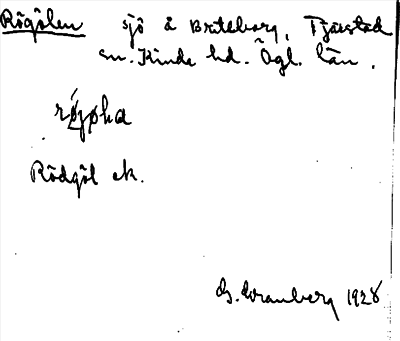 Rögölen sjö å Briteborg, Tjärstad
sn. Kinda hd. Ögl. län.
røjøka
Rödgöl ek.
G. Franberg 1928